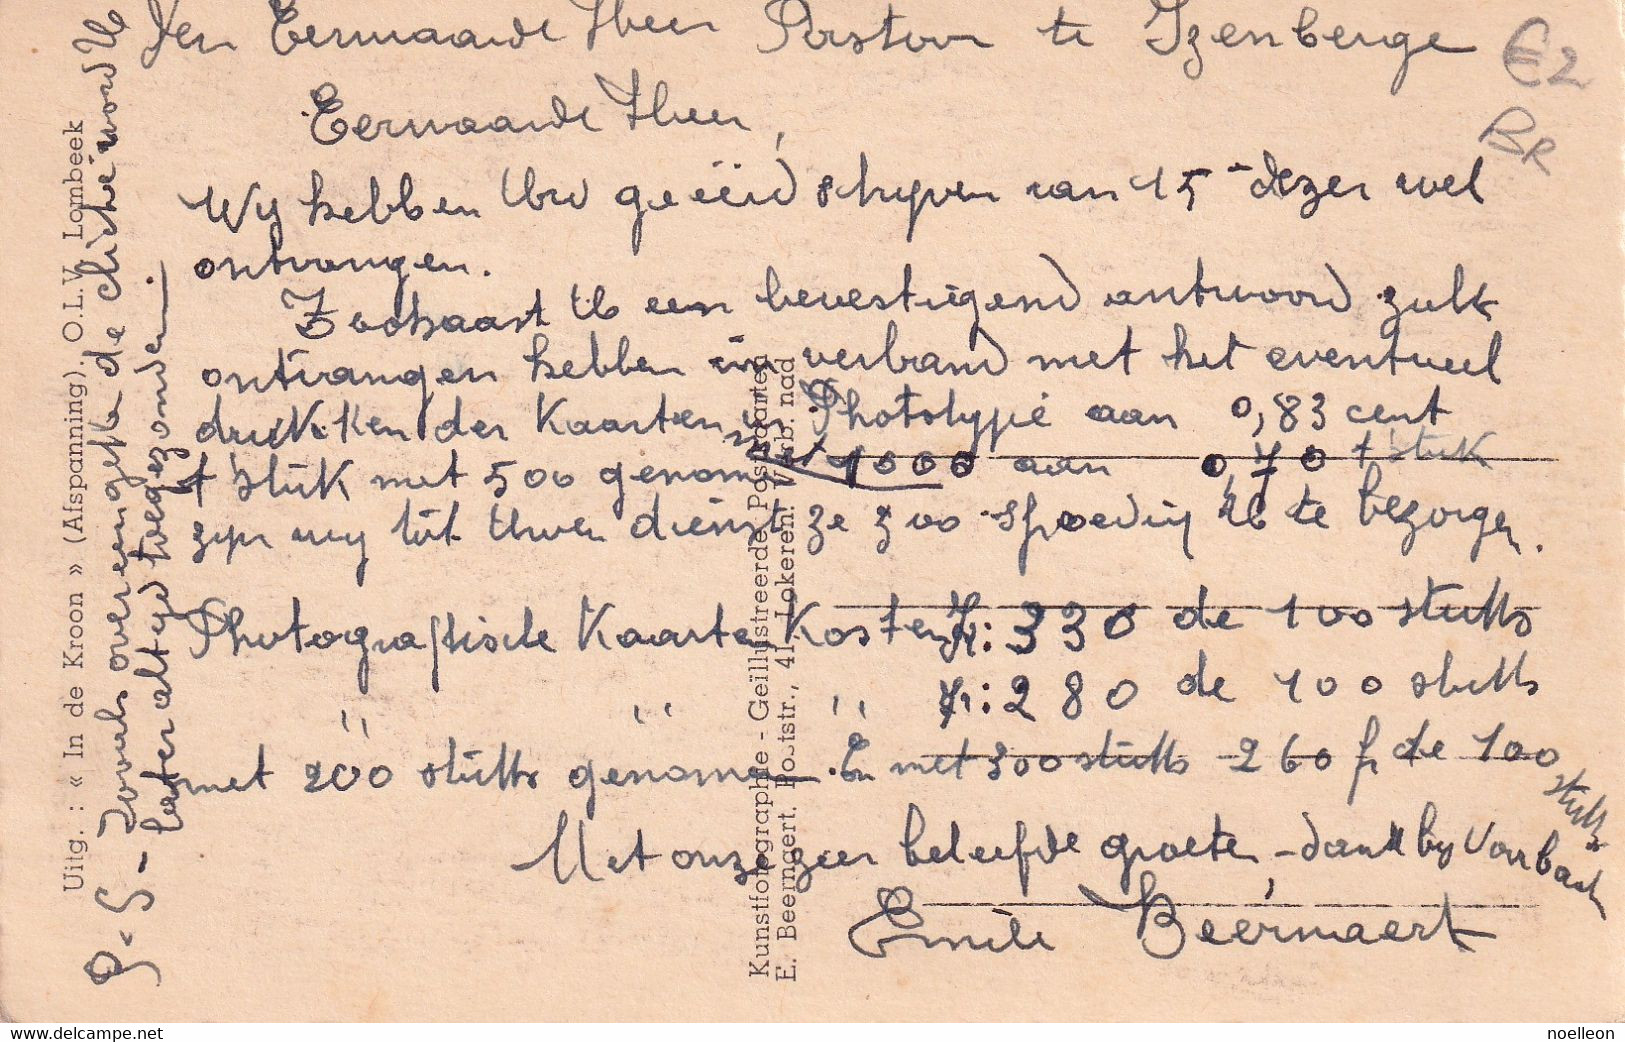 Den Eerwaarde Heer Pastoor te Izenberge
€2
BR
Eerwaarde Heer,
Wy hebben Uw geëerd schryven van 15 dezer wel
ontvangen.
Zoohaast U een bevestigend antwoord zult
ontvangen hebben in verband met het eventueel
drukken der Kaarten in Photolypie aan 0,83 cent
t'stuk met 500 genomen met 1000 aan 0,70 t'stuk
zyn wy tot Uwen dienst ze zoo spoedig U te bezorgen.
Photografische Kaarten Kosten fr: 330 de 100 stuks
" " " fr: 280 de 100 stuks
met 200 stuks genomen. En met 300 stuks 260 fr de 100 stuks
Met onze zeer beleefde groeten, - dank by voorbaat
Emile Beernaert
P.S - Zooals overeengekomen de cliché word U
later altyd toegezonden.
Uitg. : « In de Kroon » (Afspanning), O.L.V. Lombeek
Kunstfotographie - Geïllustreerde Postkaarten
E. Beernaert. Poststr., 41, Lokeren. Verb. nad
www.delcampe.net
noelleon